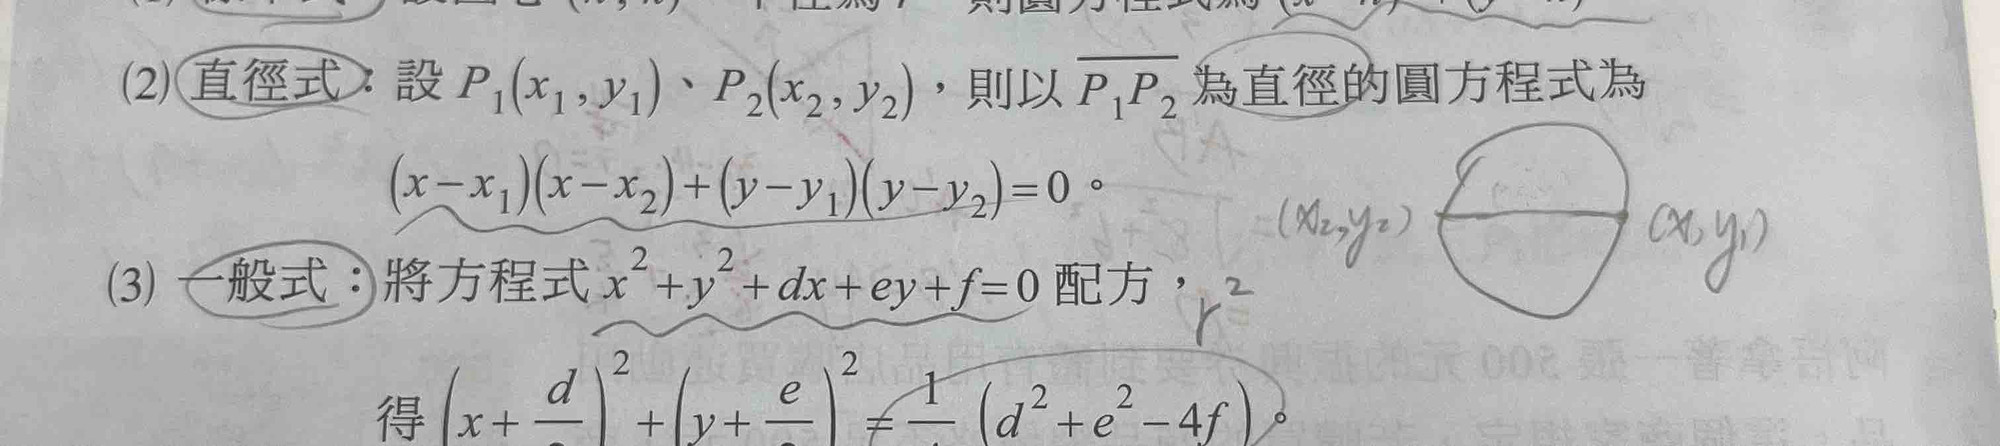 (2) 直徑式：設 P₁(x₁, y₁)、P₂(x₂, y₂)，則以 P₁P₂ 為直徑的圓方程式為
(x−x₁)(x−x₂)+(y−y₁)(y−y₂)=0。
(x₂,y₂) (x₁,y₁)
(3) 一般式：將方程式 x²+y²+dx+ey+f=0 配方，
r²
得 (x+d/)²+(y+e/)²=1/4(d²+e²−4f)。